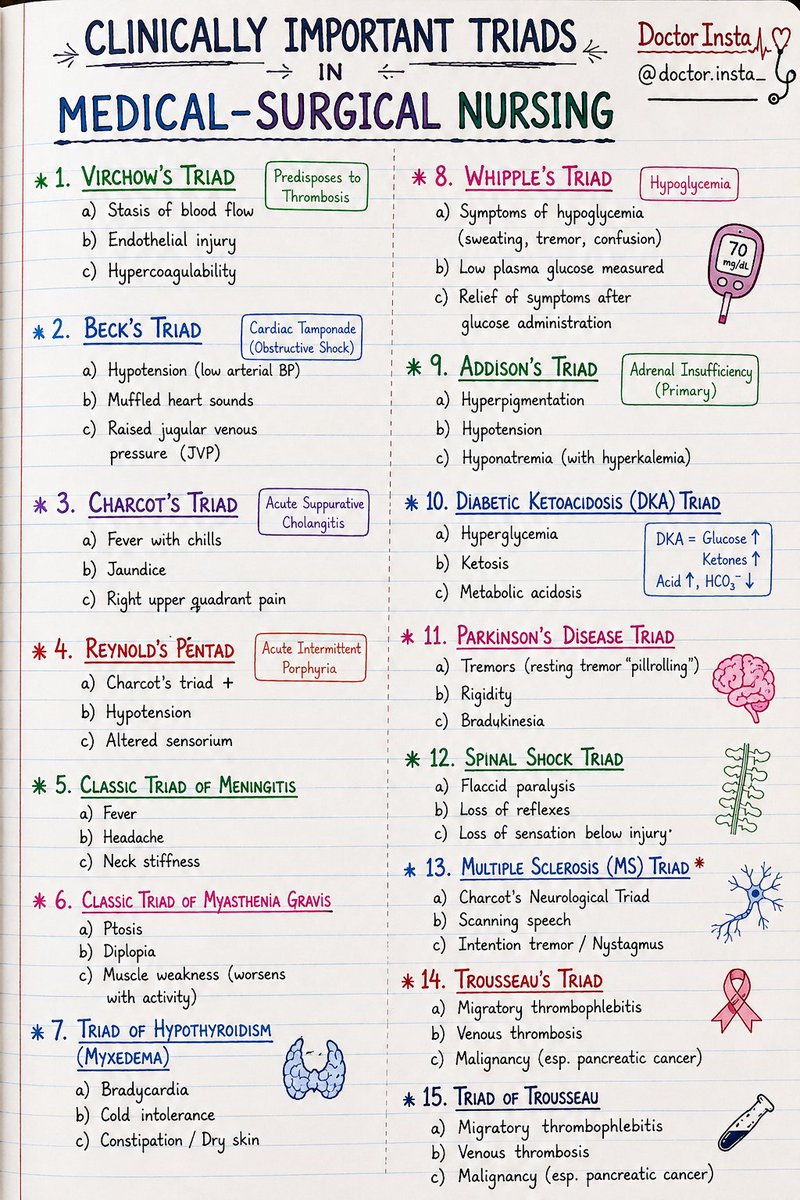 CLINICALLY IMPORTANT TRIADS
IN
MEDICAL-SURGICAL NURSING
Doctor Insta
@doctor.insta_
* 1. VIRCHOW'S TRIAD
Predisposes to
Thrombosis
a) Stasis of blood flow
b) Endothelial injury
c) Hypercoagulability
* 2. BECK'S TRIAD
Cardiac Tamponade
(Obstructive Shock)
a) Hypotension (low arterial BP)
b) Muffled heart sounds
c) Raised jugular venous
pressure (JVP)
* 3. CHARCOT'S TRIAD
Acute Suppurative
Cholangitis
a) Fever with chills
b) Jaundice
c) Right upper quadrant pain
* 4. REYNOLD'S PÉNTAD
Acute Intermittent
Porphyria
a) Charcot's triad +
b) Hypotension
c) Altered sensorium
* 5. CLASSIC TRIAD OF MENINGITIS
a) Fever
b) Headache
c) Neck stiffness
* 6. CLASSIC TRIAD OF MYASTHENIA GRAVIS
a) Ptosis
b) Diplopia
c) Muscle weakness (worsens
with activity)
* 7. TRIAD OF HYPOTHYROIDISM
(MYXEDEMA)
a) Bradycardia
b) Cold intolerance
c) Constipation / Dry skin
* 8. WHIPPLE'S TRIAD
Hypoglycemia
a) Symptoms of hypoglycemia
(sweating, tremor, confusion)
b) Low plasma glucose measured
c) Relief of symptoms after
glucose administration
70
mg/dL
* 9. ADDISON'S TRIAD
Adrenal Insufficiency
(Primary)
a) Hyperpigmentation
b) Hypotension
c) Hyponatremia (with hyperkalemia)
* 10. DIABETIC KETOACIDOSIS (DKA) TRIAD
a) Hyperglycemia
b) Ketosis
c) Metabolic acidosis
DKA = Glucose ↑
Ketones ↑
Acid ↑, HCO₃⁻ ↓
* 11. PARKINSON'S DISEASE TRIAD
a) Tremors (resting tremor "pillrolling")
b) Rigidity
c) Bradukinesia
* 12. SPINAL SHOCK TRIAD
a) Flaccid paralysis
b) Loss of reflexes
c) Loss of sensation below injury
* 13. MULTIPLE SCLEROSIS (MS) TRIAD *
a) Charcot's Neurological Triad
b) Scanning speech
c) Intention tremor / Nystagmus
* 14. TROUSSEAU'S TRIAD
a) Migratory thrombophlebitis
b) Venous thrombosis
c) Malignancy (esp. pancreatic cancer)
* 15. TRIAD OF TROUSSEAU
a) Migratory thrombophlebitis
b) Venous thrombosis
c) Malignancy (esp. pancreatic cancer)